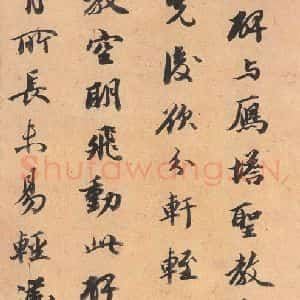 碑与鴈塔聖教
先後欲分軒輊
教空明飛動此碑
所長未易輕議
Shufawang.CN